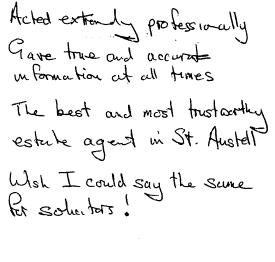 Acted extremely professionally
Gave true and accurate
information at all times
The best and most trustworthy
estate agent in St. Austell
Wish I could say the same
for solicitors!